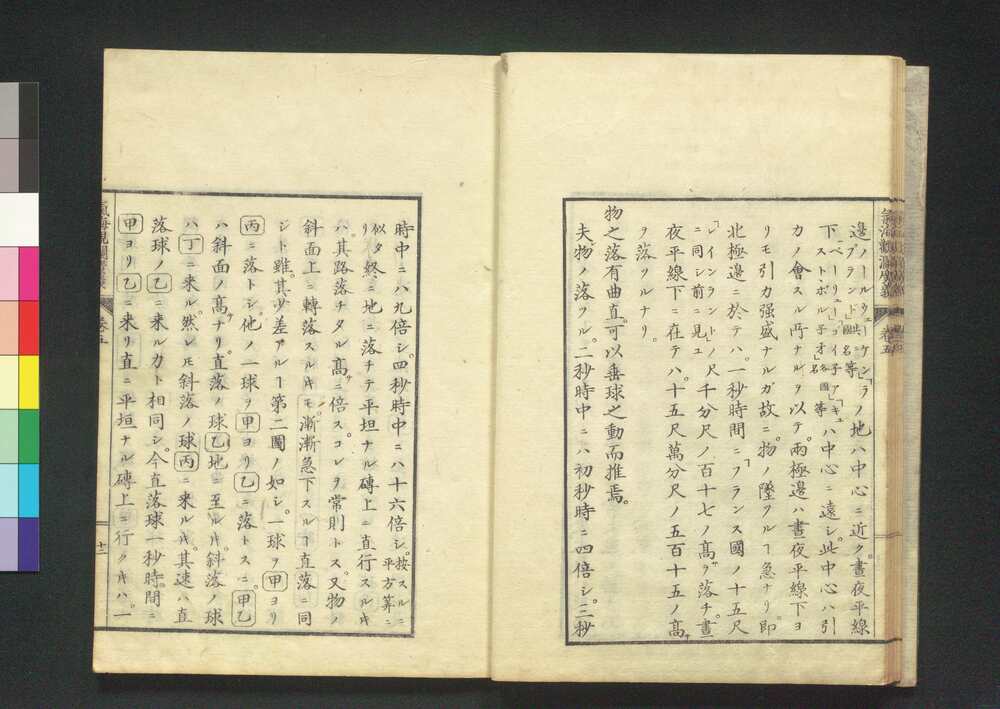 邊ノールウェーゲン「ラノ地ハ中心ニ近ク。晝夜平線
下ストボル子オ名ハ中心ニ遠シ。此中心ハ引
カノ會スル所ナルヲ以テ。兩極邊ハ晝夜平線下ヨ
リモ引力强盛ナルガ故ニ。物ノ墜フルヿ急ナリ。即
北極邊ニ於テハ。一秒時間ニ。フランス國ノ十五尺
「レインラントノ尺ニ同シ前ニ見ユ千分尺ノ百十七ノ高ヲ落チ。晝
夜平線下ニ在テハ。十五尺萬分尺ノ五百十五ノ高サ
ヲ落ツルナリ。
物之落有曲直。可以垂球之動而推焉。
夫物ノ落フル。二秒時中ニハ初秒時ニ四倍シ。三秒
時中ニハ九倍シ。四秒時中ニハ十六倍シ。按スルニ平方算ニ
似タリ終ニ地ニ落チテ平坦ナル磚上ニ直行スルキ
ハ。其路落チタル高サニ倍ス。コレヲ常則トス。又物ノ
斜面上ニ轉落スルキモ。漸漸急下スルヿ直落ニ同
シト雖。其少差アルヿ第二圖ノ如シ。一球ヲ甲ヨリ
丙ニ落トシ。他ノ一球ヲ甲ヨリ乙ニ落トスニ。甲乙
ハ斜面ノ高サナリ。直落ノ球乙地ニ至ルキ。斜落ノ球
ハ丁ニ来ル。然レモ斜落ノ球丙ニ来ルキ。其速ハ直
落球ノ乙ニ来ルカト相同シ。今直落球一秒時間ニ
甲ヨリ乙ニ来リ直ニ平坦ナル磚上ニ行クキハ。一
卷五
十二